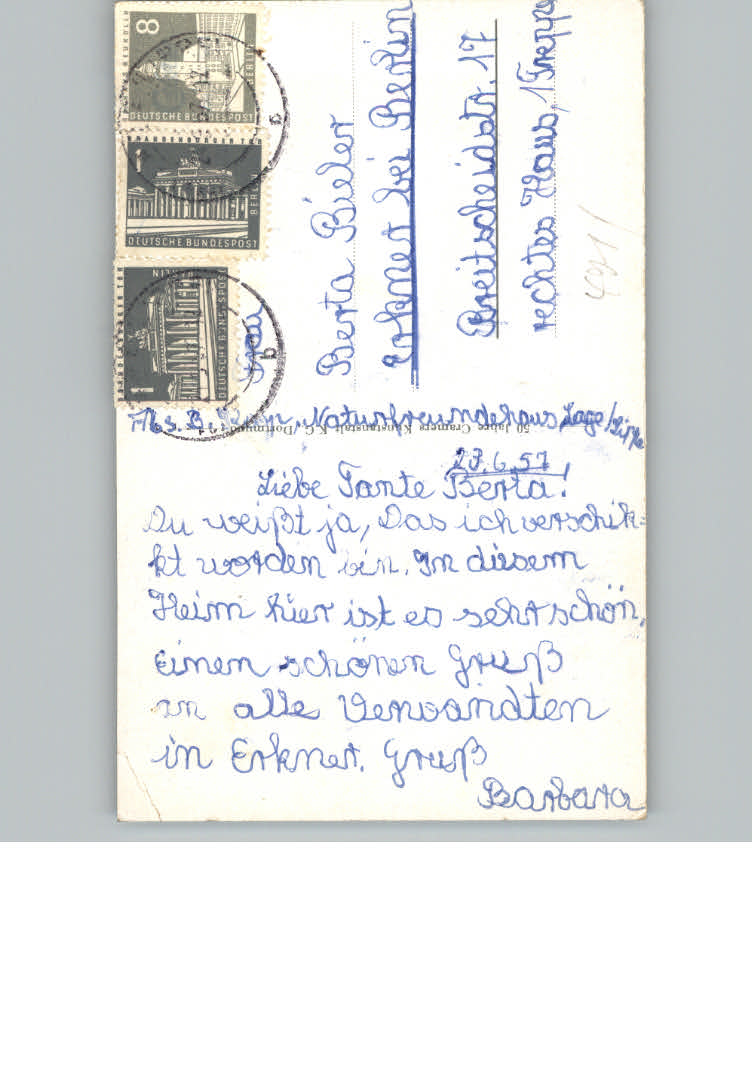 NEUKÖLLN
8
BERLIN
DEUTSCHE BUNDESPOST
BRANDENBURGER TOR
1
BERLIN
DEUTSCHE BUNDESPOST
BRANDENBURGER TOR
1
BERLIN
DEUTSCHE BUNDESPOST
b
b
Frau
Berta Bieler
Erkner bei Berlin
Breitscheidstr. 17
rechtes Haus, 1 Treppe
Abs. B. Naturfreundehaus, Lage/Lippe
50 Jahre Cramers Kunstanstalt K.G. Dortmund
23.6.57
Liebe Tante Berta!
Du weißt ja, Das ich verschik=
kt worden bin. In diesem
Heim hier ist es sehr schön.
Einen schönen Gruß
an alle Verwandten
in Erkner. Gruß
Barbara